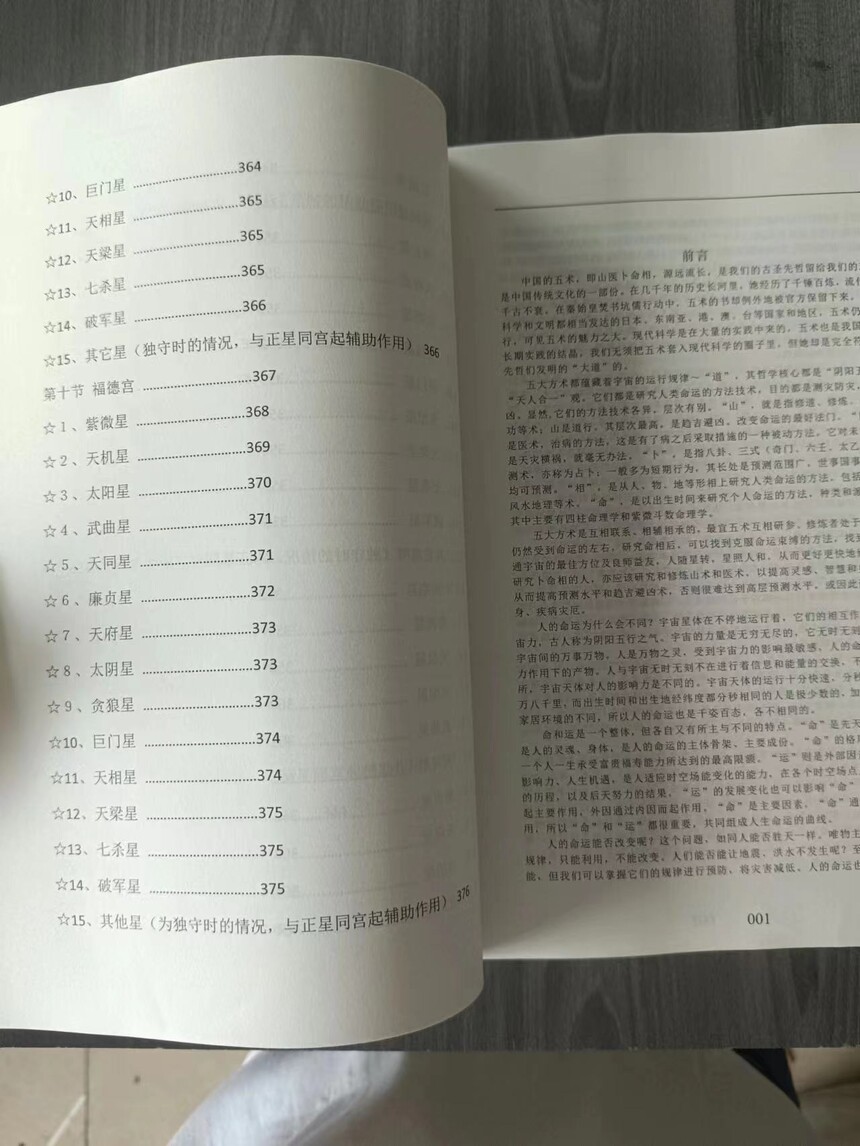 ☆10、巨门星 ……………………364
☆11、天相星 ……………………365
☆12、天梁星 ……………………365
☆13、七杀星 ……………………365
☆14、破军星 ……………………366
☆15、其它星（独守时的情况，与正星同宫起辅助作用） 366
第十节 福德宫 ……………………367
☆1、紫微星 ……………………368
☆2、天机星 ……………………369
☆3、太阳星 ……………………370
☆4、武曲星 ……………………371
☆5、天同星 ……………………371
☆6、廉贞星 ……………………372
☆7、天府星 ……………………373
☆8、太阴星 ……………………373
☆9、贪狼星 ……………………373
☆10、巨门星 ……………………374
☆11、天相星 ……………………374
☆12、天梁星 ……………………375
☆13、七杀星 ……………………375
☆14、破军星 ……………………375
☆15、其他星（为独守时的情况，与正星同宫起辅助作用） 376
前言
中国的五术，即山医卜命相，源远流长，是我们的古圣先哲留给我们的
是中国传统文化的一部份。在几千年的历史长河里，她经历了千锤百炼，流传
千古不衰。在秦始皇焚书坑儒行动中，五术的书却例外地被官方保留下来，
科学和文明都相当发达的日本、东南亚、港、澳、台等国家和地区，五术仍
行，可见五术的魅力之大。现代科学是在大量的实践中来的，五术也是我国
长期实践的结晶，我们无须把五术套入现代科学的圈子里，但她却是完全符
先哲们发明的“大道”的。
五大方术都蕴藏着宇宙的运行规律～“道”，其哲学核心都是“阴阳五
“天人合一”观。它们都是研究人类命运的方法技术，目的都是测灾防灾，
凶。显然，它们的方法技术各异，层次有别。“山”，就是指修道、修炼、
功等术；山是道行，其层次最高，是趋吉避凶、改变命运的最好法门。“
是医术，治病的方法，这是有了病之后采取措施的一种被动方法。它对未
是天灾横祸，就毫无办法。“卜”，是指八卦、三式（奇门、六壬、太乙
测术，亦称为占卜；一般多为短期行为，其长处是预测范围广，世事国事
均可预测。“相”，是从人、物、地等形相上研究人类命运的方法，包括
风水地理等术。“命”，是以出生时间来研究个人命运的方法，种类和派
其中主要有四柱命理学和紫微斗数命理学。
五大方术是互相联系、相辅相承的。最宜五术互相研参。修炼者处于
仍然受到命运的左右，研究命相后，可以找到克服命运束缚的方法，找到
通宇宙的最佳方位及良师益友，人随星转，星照人和，从而更好更快地修
研究卜命相的人，亦应该研究和修炼山术和医术，以提高灵感、智慧和
从而提高预测水平和趋吉避凶术，否则很难达到高层预测水平，或因此
身、疾病灾厄。
人的命运为什么会不同？宇宙星体在不停地运行着，它们的相互作
宙力，古人称为阴阳五行之气。宇宙的力量是无穷无尽的，它无时无刻
宇宙间的万事万物。人是万物之灵，受到宇宙力的影响最敏感，人的命
力作用下的产物。人与宇宙无时无刻不在进行着信息和能量的交换。不
所，宇宙天体对人的影响力是不同的。宇宙天体的运行十分快速，分秒
万八千里，而出生时间和出生地经纬度都分秒相同的人是极少数的，加
家居环境的不同，所以人的命运也是千姿百态、各不相同的。
命和运是一个整体，但各自又有所主与不同的特点。“命”是先天
是人的灵魂、身体，是人的命运的主体骨架、主要成份。“命”的格局
一个人一生承受富贵福寿能力所达到的最高限额。“运”则是外部因
影响力、人生机遇，是人适应时空场能变化的能力，在各个时空场点
的历程，以及后天努力的结果，“运”的发展变化也可以影响“命”
起主要作用，外因通过内因而起作用，“命”是主要因素，“命”通
用，所以“命”和“运”都很重要，共同组成人生命运的曲线。
人的命运能否改变呢？这个问题，如同人能否胜天一样，唯物主
规律，只能利用，不能改变。人们能否能让地震、洪水不发生呢？至
能，但我们可以掌握它们的规律进行预防，将灾害减低。人的命运也
001